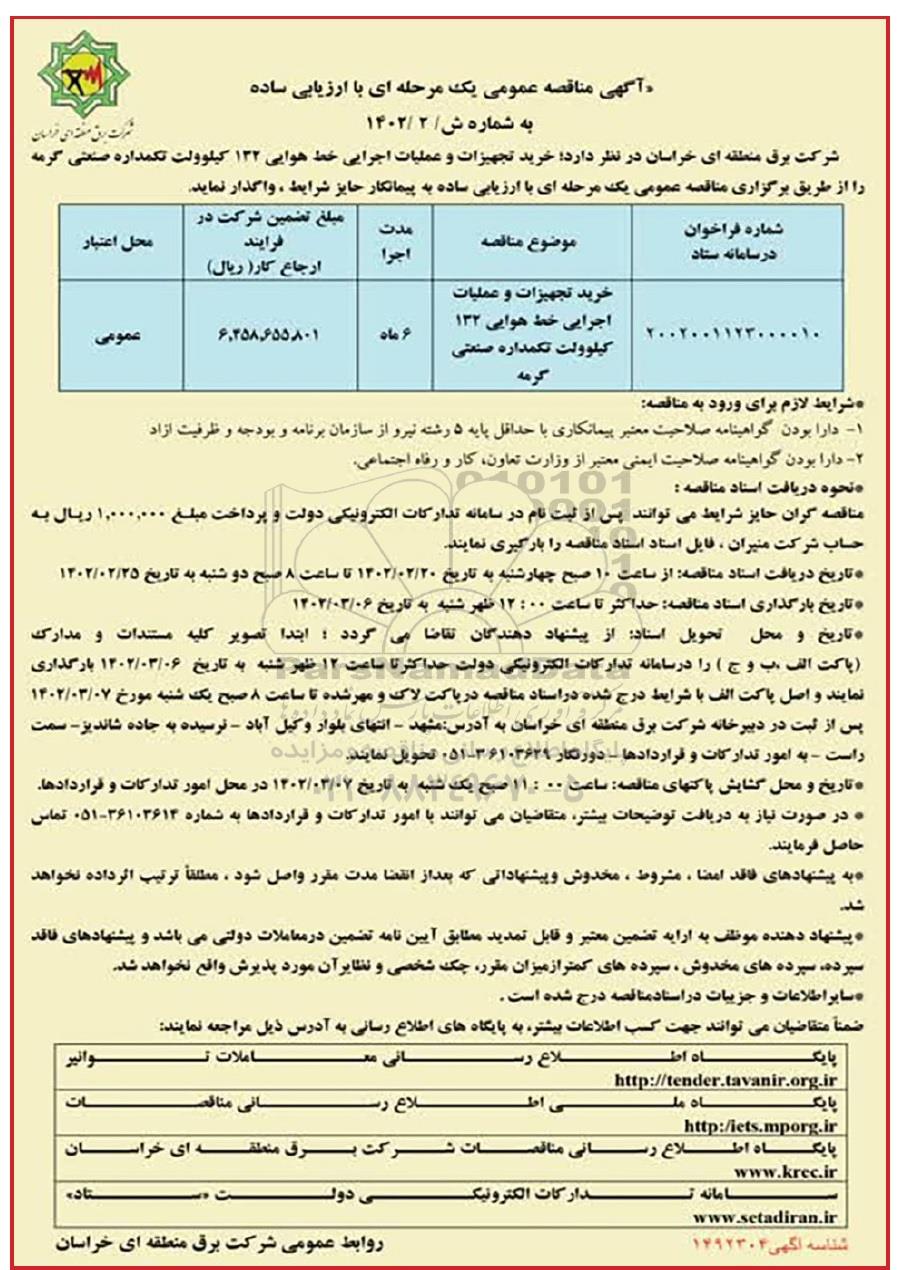 شرکت برق منطقه ای خراسان
«آگهی مناقصه عمومی یک مرحله ای با ارزیابی ساده
به شماره ش/ ۲ /۱۴۰۲
شرکت برق منطقه ای خراسان در نظر دارد؛ خرید تجهیزات و عملیات اجرایی خط هوایی ۱۳۲ کیلوولت تکمداره صنعتی گرمه
را از طریق برگزاری مناقصه عمومی یک مرحله ای با ارزیابی ساده به پیمانکار حایز شرایط ، واگذار نماید.
شماره فراخوان درسامانه ستاد
موضوع مناقصه
مدت اجرا
مبلغ تضمین شرکت در فرایند ارجاع کار( ریال)
محل اعتبار
۲۰۰۲۰۰۱۱۲۳۰۰۰۰۱۰
خرید تجهیزات و عملیات
اجرایی خط هوایی ۱۳۲
کیلوولت تکمداره صنعتی
گرمه
۶ ماه
۶,۴۵۸,۶۵۵,۸۰۱
عمومی
*شرایط لازم برای ورود به مناقصه:
۱- دارا بودن گواهینامه صلاحیت معتبر پیمانکاری با حداقل پایه ۵ رشته نیرو از سازمان برنامه و بودجه و ظرفیت ازاد
۲- دارا بودن گواهینامه صلاحیت ایمنی معتبر از وزارت تعاون، کار و رفاه اجتماعی.
*نحوه دریافت اسناد مناقصه :
مناقصه گران حایز شرایط می توانند پس از ثبت نام در سامانه تدارکات الکترونیکی دولت و پرداخت مبلغ ۱,۰۰۰,۰۰۰ ریال به
حساب شرکت منیران ، فایل اسناد اسناد مناقصه را بارگیری نمایند.
*تاریخ دریافت اسناد مناقصه: از ساعت ۱۰ صبح چهارشنبه به تاریخ ۱۴۰۲/۰۲/۲۰ تا ساعت ۸ صبح دو شنبه به تاریخ ۱۴۰۲/۰۲/۲۵
*تاریخ بارگذاری اسناد مناقصه: حداکثر تا ساعت ۰۰ : ۱۲ ظهر شنبه به تاریخ ۱۴۰۲/۰۳/۰۶
*تاریخ و محل تحویل اسناد: از پیشنهاد دهندگان تقاضا می گردد ؛ ابتدا تصویر کلیه مستندات و مدارک
(پاکت الف ،ب و ج ) را درسامانه تدارکات الکترونیکی دولت حداکثرتا ساعت ۱۲ ظهر شنبه به تاریخ ۱۴۰۲/۰۳/۰۶ بارگذاری
نمایند و اصل پاکت الف با شرایط درج شده دراسناد مناقصه درپاکت لاک و مهرشده تا ساعت ۸ صبح یک شنبه مورخ ۱۴۰۲/۰۳/۰۷
پس از ثبت در دبیرخانه شرکت برق منطقه ای خراسان به آدرس:مشهد - انتهای بلوار وکیل آباد - نرسیده به جاده شاندیز- سمت
راست - به امور تدارکات و قراردادها - دورنگار ۳۶۱۰۳۶۲۹-۰۵۱ تحویل نمایند.
*تاریخ و محل گشایش پاکتهای مناقصه: ساعت ۰۰ : ۱۱ صبح یک شنبه به تاریخ ۱۴۰۲/۰۳/۰۷ در محل امور تدارکات و قراردادها.
* در صورت نیاز به دریافت توضیحات بیشتر، متقاضیان می توانند با امور تدارکات و قراردادها به شماره ۳۶۱۰۳۶۱۴-۰۵۱ تماس
حاصل فرمایند.
*به پیشنهادهای فاقد امضا ، مشروط ، مخدوش وپیشنهاداتی که بعداز انقضا مدت مقرر واصل شود ، مطلقاً ترتیب اثرداده نخواهد
شد.
*پیشنهاد دهنده موظف به ارایه تضمین معتبر و قابل تمدید مطابق آیین نامه تضمین درمعاملات دولتی می باشد و پیشنهادهای فاقد
سپرده، سپرده های مخدوش ، سپرده های کمترازمیزان مقرر، چک شخصی و نظایرآن مورد پذیرش واقع نخواهد شد.
*سایراطلاعات و جزییات دراسنادمناقصه درج شده است .
ضمناً متقاضیان می توانند جهت کسب اطلاعات بیشتر، به پایگاه های اطلاع رسانی به آدرس ذیل مراجعه نمایند:
پایگاه اطلاع رسانی معاملات توانیر
http://tender.tavanir.org.ir
پایگاه ملی اطلاع رسانی مناقصات
http:/iets.mporg.ir
پایگاه اطلاع رسانی مناقصات شرکت برق منطقه ای خراسان
www.krec.ir
سامانه تدارکات الکترونیکی دولت «ستاد»
www.setadiran.ir
شناسه آگهی۱۴۹۲۳۰۴
روابط عمومی شرکت برق منطقه ای خراسان
ParsNamadData